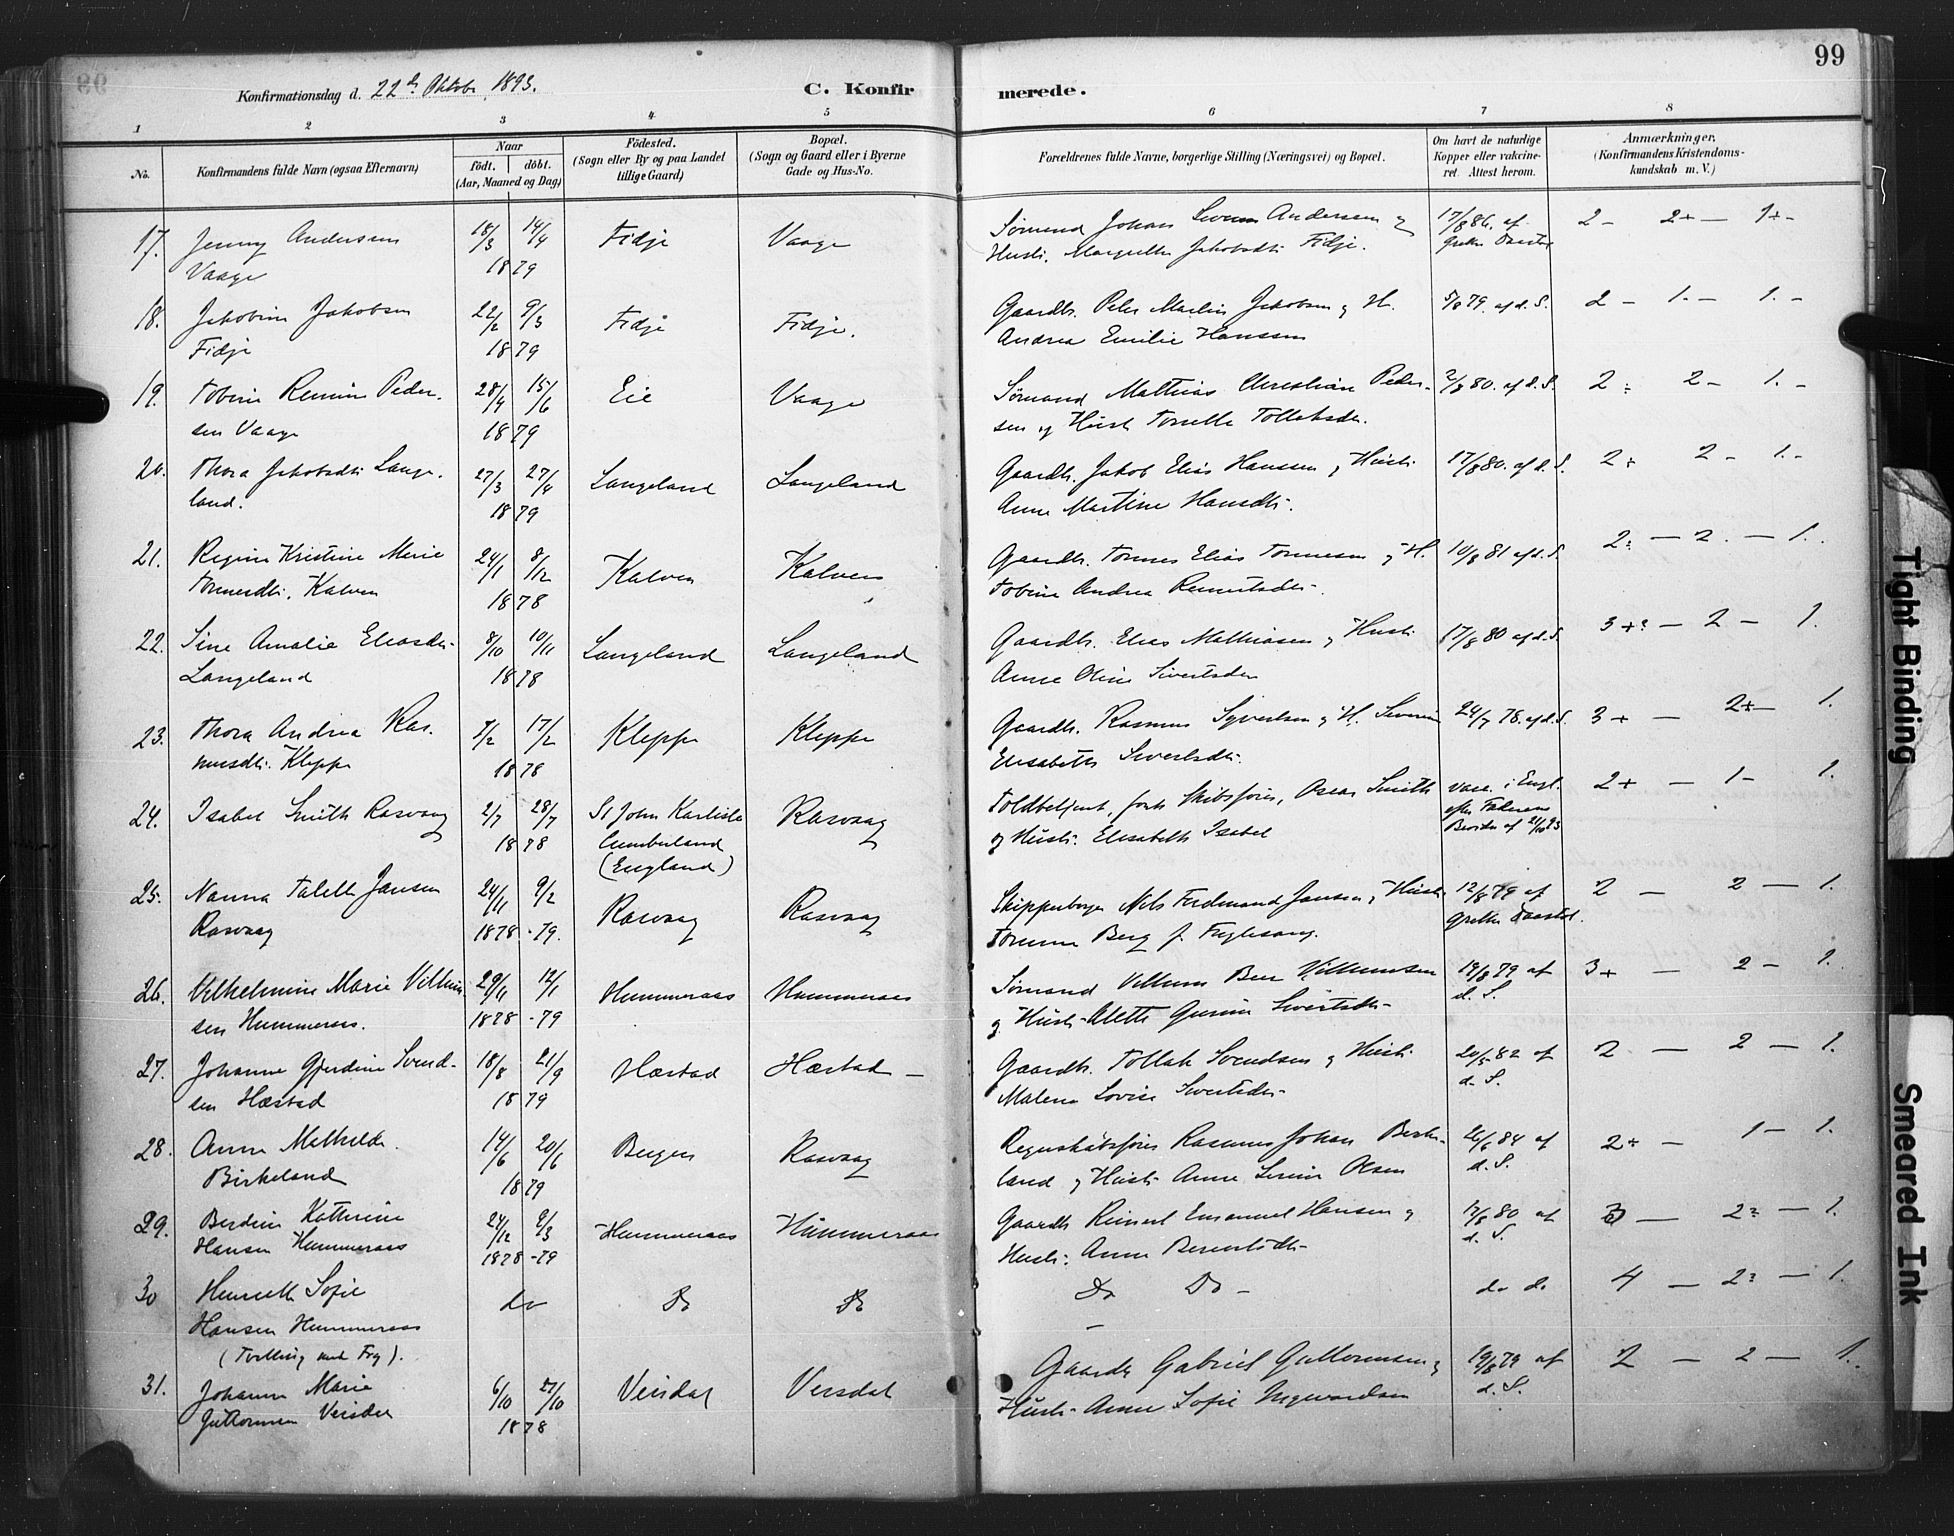 99
Konfirmationsdag d. 22de Oktobr 1893.
C. Konfirmerede.
1 2 3 4 5 6 7 8
No.
Konfirmandens fulde Navn (ogsaa Efternavn)
Naar
födt. döbt.
(Aar, Maaned og Dag)
Födested.
(Sogn eller By og paa Landet
tillige Gaard)
Bopæl.
(Sogn og Gaard eller i Byerne
Gade og Hus-No.
Forældrenes fulde Navne, borgerlige Stilling (Næringsvei) og Bopæl.
Om havt de naturlige
Kopper eller vakcine-
ret. Attest herom.
Anmærkninger,
(Konfirmandens Kristendoms-
kundskab m. V.)
17. Jenny Andersen 18/3 14/4 Fidje Vaage Sömand Johan Andersen og 17/8 86. af 2 - 2+ - 1+ -
Vaage 1879 Hustr. Margrethe Jakobsdtr Fidje.
18. Jakobine Jakobsen 22/2 9/3 Fidje Fidje. Gaardbr. Peter Martin Jakobsen og H. 5/8 79. af d. S. 2 - 1. - 1. -
Fidje 1879 Andrea Emilie Hanssen
19. Tobine Remine Peder- 28/4 15/6 Eie Vaage Sömand Mathias Christian Peder- 2/8 80. af d. S. 2 : 2 - 1. -
sen Vaage 1879 sen og Hustr Tollaksdtr.
20. Thora Jakobsdtr Lange- 27/3 27/4 Langeland Langeland Gaardbr. Jakob Elias Hanssen og Hustr. 17/8 80. af d. S. 2+ 2 - 1. -
land. 1879 Anne Martine Hansdtr.
21. Regine Kristine Marie 24/1 8/12 Kalven Kalven Gaardbr. Tönnes Elias Tönnesen og H. 10/8 81 af d. S. 2: - 2. - 1.
Tönnesdtr. Kalven 1878 Tobine Andrea
22. Sine Amalie Eliasdtr. 8/10 10/11 Langeland Langeland Gaardbr. Elias Mathiasen og Hustr. 17/8 80 af d. S. 3+? - 2 - 1.
Langeland 1878 Anne Oline Sivertsdtr
23. Thora Andrea Ras- 7/2 17/2 Kleppe Kleppe Gaardbr. Rasmus Syvertsen og H. 24/7 78. af d. S. 3+ - 2+ - 1.
musdtr. Kleppe 1878 Elisabeth Sivertsdtr.
24. Isabel Smith Rasvaag 2/7 28/7 St John Karlisle Rasvaag Toldbetjent, forh. Skibsförer, Oscar Smith vacc. i Engl. 2+ - 1 - 1.
1878 Cumberland og Hustr. Elisabeth Isabel efter Faderens
(England) Bevidn af 21/10 93
25. Nanna Talette Jansen 24/11 9/2 Rasvaag Rasvaag Skipperborger Nils Ferdinand Jansen og Hustr 12/8 79 af 2 - 2 - 1.
Rasvaag 1878 -79. Berg f. Fuglesang.
26. Vilhelmine Marie Vilhelm- 29/11 12/1 Hummeraas Hummeraas Sömand Vilhelm Vilhelmsen 19/8 79 af 3+ - 2 - 1.
sen Hummeraas. 1878 -79 og Hustr. Alette Gurine Sivertsdtr. d. S.
27. Johanne Gjerdine Svend- 18/8 21/9 Hæstad Hæstad Gaardbr. Tollak Svendsen og Hustr. 20/5 82 af 2 - 2 - 1.
sen Hæstad 1879 Malene Lovise Sivertsdtr. d. S.
28. Anna Mathilde 14/6 20/6 Bergen Rasvaag Regnskabsförer Rasmus Johan Birke- 26/6 84 af 2+ - 1 - 1.
Birkeland 1879 land og Hustr Anne Serine Olsen d. S.
29. Berdine Kathrine 24/12 9/3 Hummeraas Hummeraas Gaardbr Reinert Emanuel Hansen og 12/8 80 af 3 - 2? - 1.
Hansen Hummeraas 1878 -79 Hustr. Anne Berentsdtr. d. S.
30 Henriette Sofie do Do Do Do Do - do do 4 - 2? - 1.
Hansen Hummeraas
(Tvilling med Frg).
31. Johanne Marie 6/10 27/10 Veisdal Veisdal Gaardbr Gabriel Guttormsen og 19/8 79 af 2 - 2 - 1.
Guttormsen Veisdal 1878 Hustr. Anne Sofie d. S.
Tight Binding
Smeared Ink